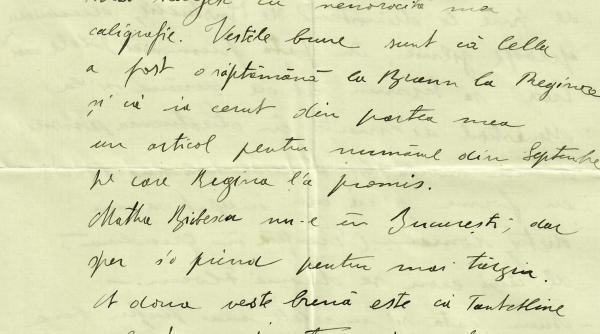 cu nenorocita mea
caligrafie. Veștile bune sunt că Cella
a fost o săptămână la Bran la Regina
și că i-a cerut din partea mea
un articol pentru numărul din Septembrie
pe care Regina l'a promis.
Martha Bibescu nu-e în București; dar
sper s'o prind pentru mai târziu.
A doua veste bună este că